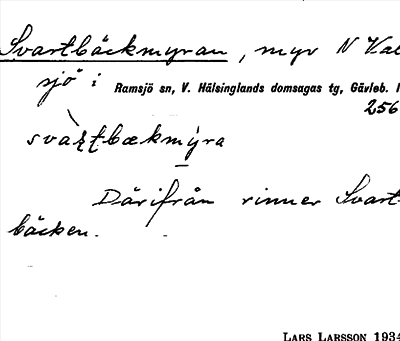 Svartbäckmyran, myr N Kal
sjö i Ramsjö sn, V. Hälsinglands domsagas tg, Gävleb. l
256
svàṭṭbækmýra
Därifrån rinner Svart-
bäcken.
LARS LARSSON 1934